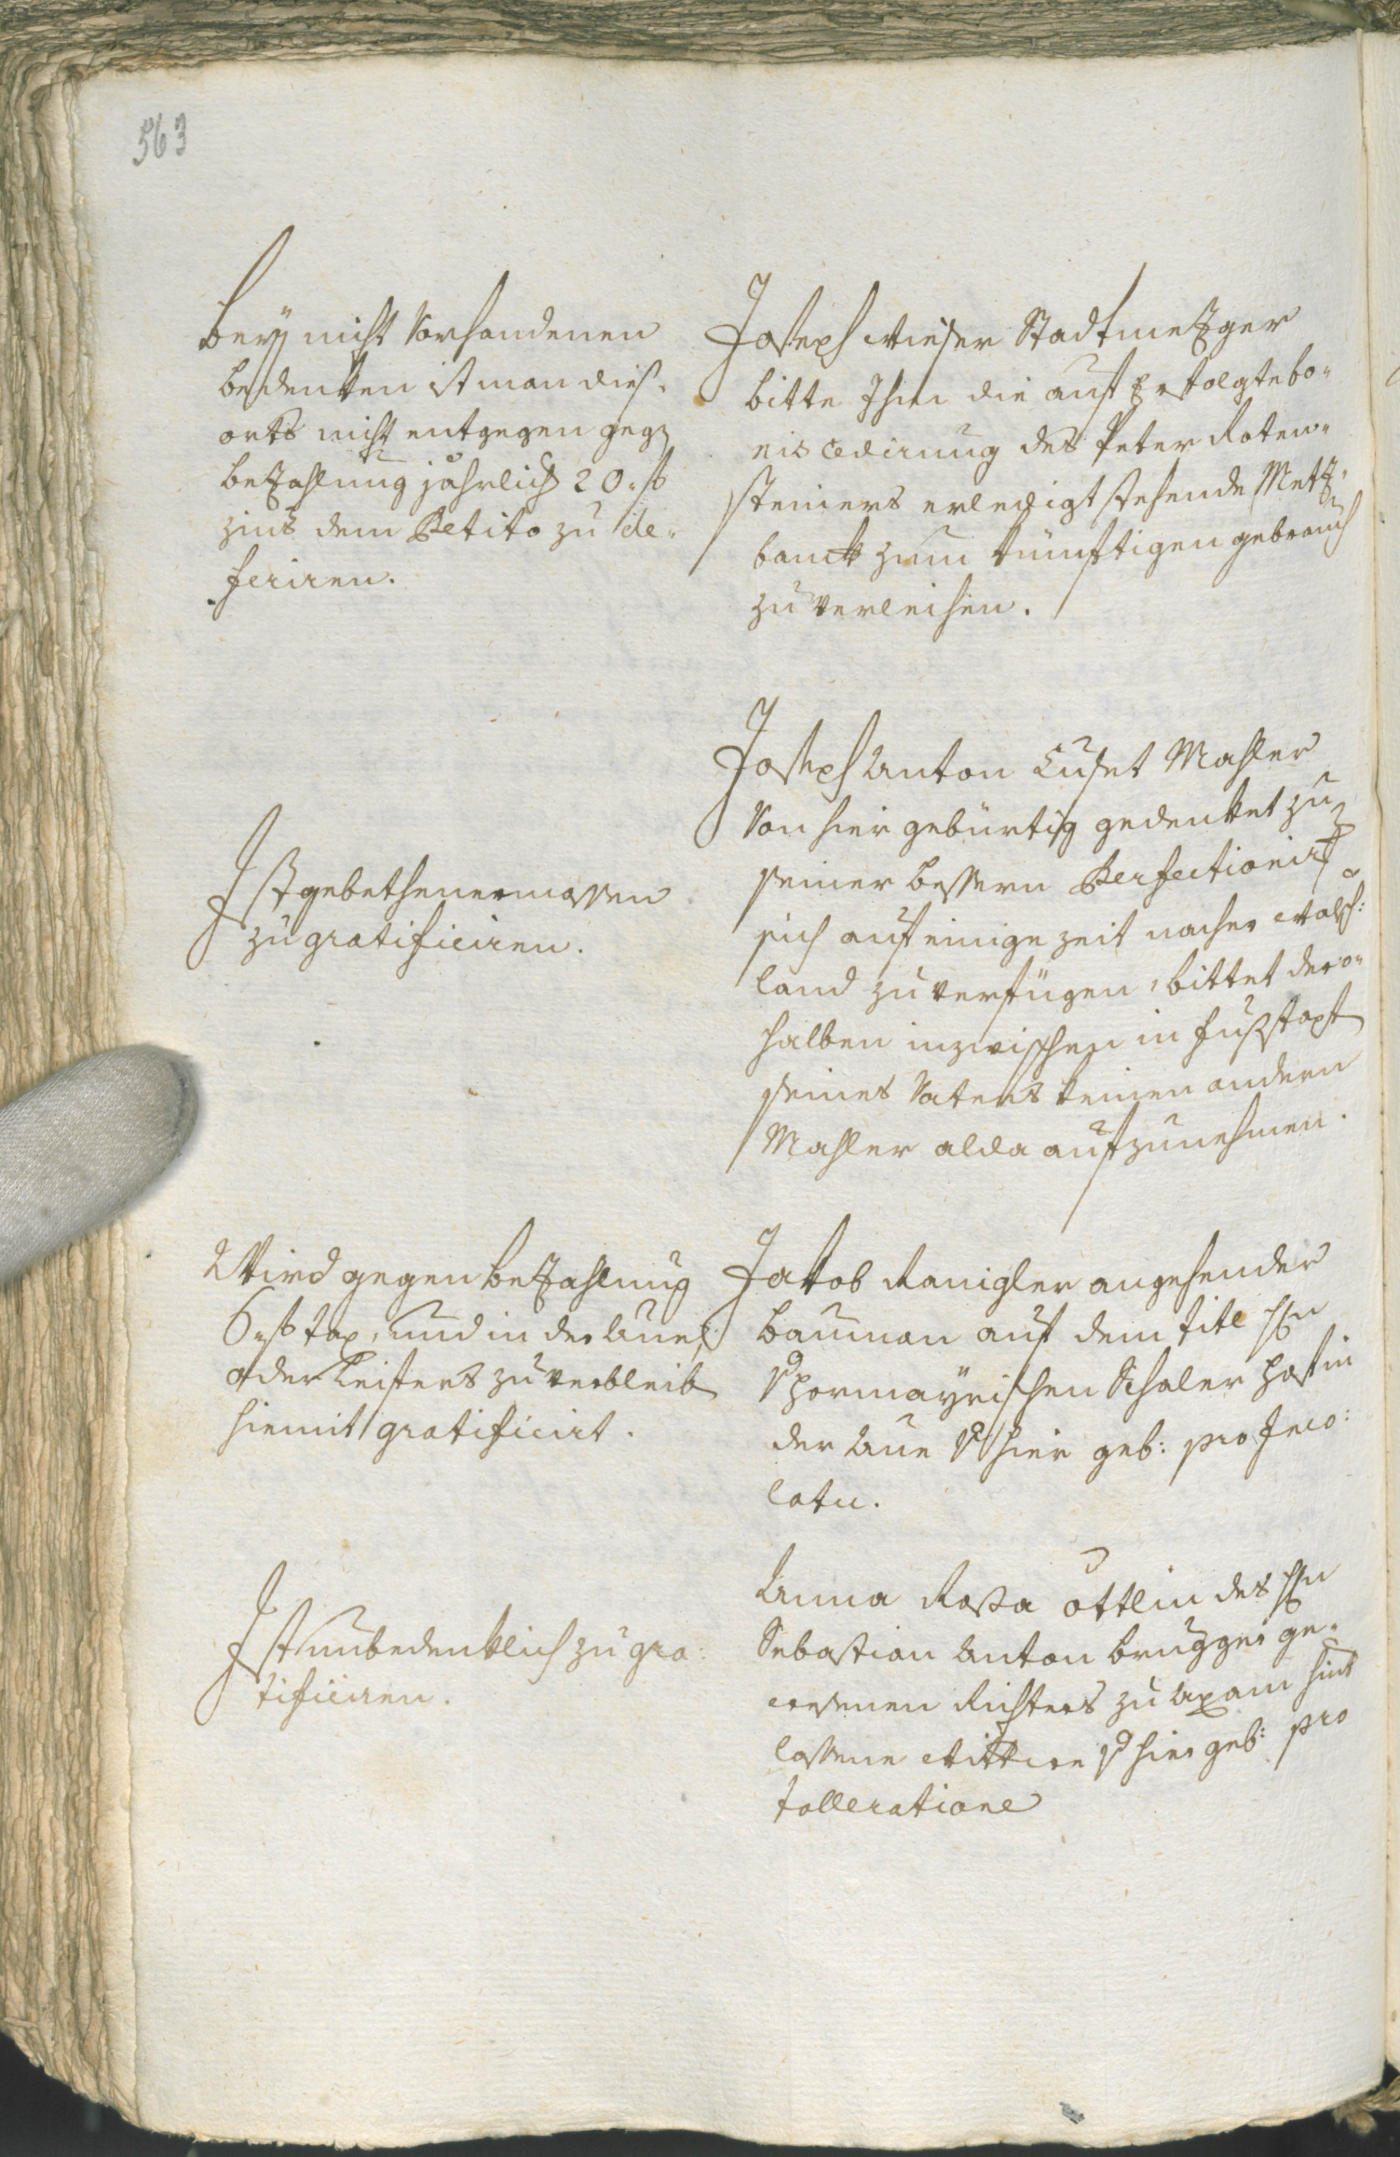 563
Bey nicht Vorhandenen
bedenken ist man dies¬
orts nicht entgegen geg.
bezahlung jährlich 20 f
zins dem Petito zu de¬
feriren.
Joseph Wieser Stadtmezger
bitte Ihm die auf erfolgte bo¬
nis cedirung des Peter Roten¬
steiners erledigt stehende Metz¬
banck zum künftigen gebrauch
zu verleichen.
Ist gebethenermassen
zu gratificiren.
Joseph Anton Mahler
Von hier gebürtig gedenket zu
seiner bessern Perfectionir
sich auf einige zeit nacher Walsch:
land zu verfügen, bittet dero¬
halben inzwischen in Fußstapf
seines Vaters keinen andern
Mahler alda aufzunehmen.
Wird gegen bezahlung
6 f tax, und in der Aue
oder Leifers zu verbleib
hiemit gratificirt.
Jakob Ranigler angehender
Bauman auf dem tite Hn
Hormayrischen Schaler Hof in
der Aue hier geb: pro Inco:
latu.
Ist unbedenklich zu gra:
tificiren.
Anna Rosa Öttlin des Hn
Sebastian Anton Brugger ge¬
wesenen Richters zu Axam hint
lassene Wittwe hier geb: pro
tolleratione